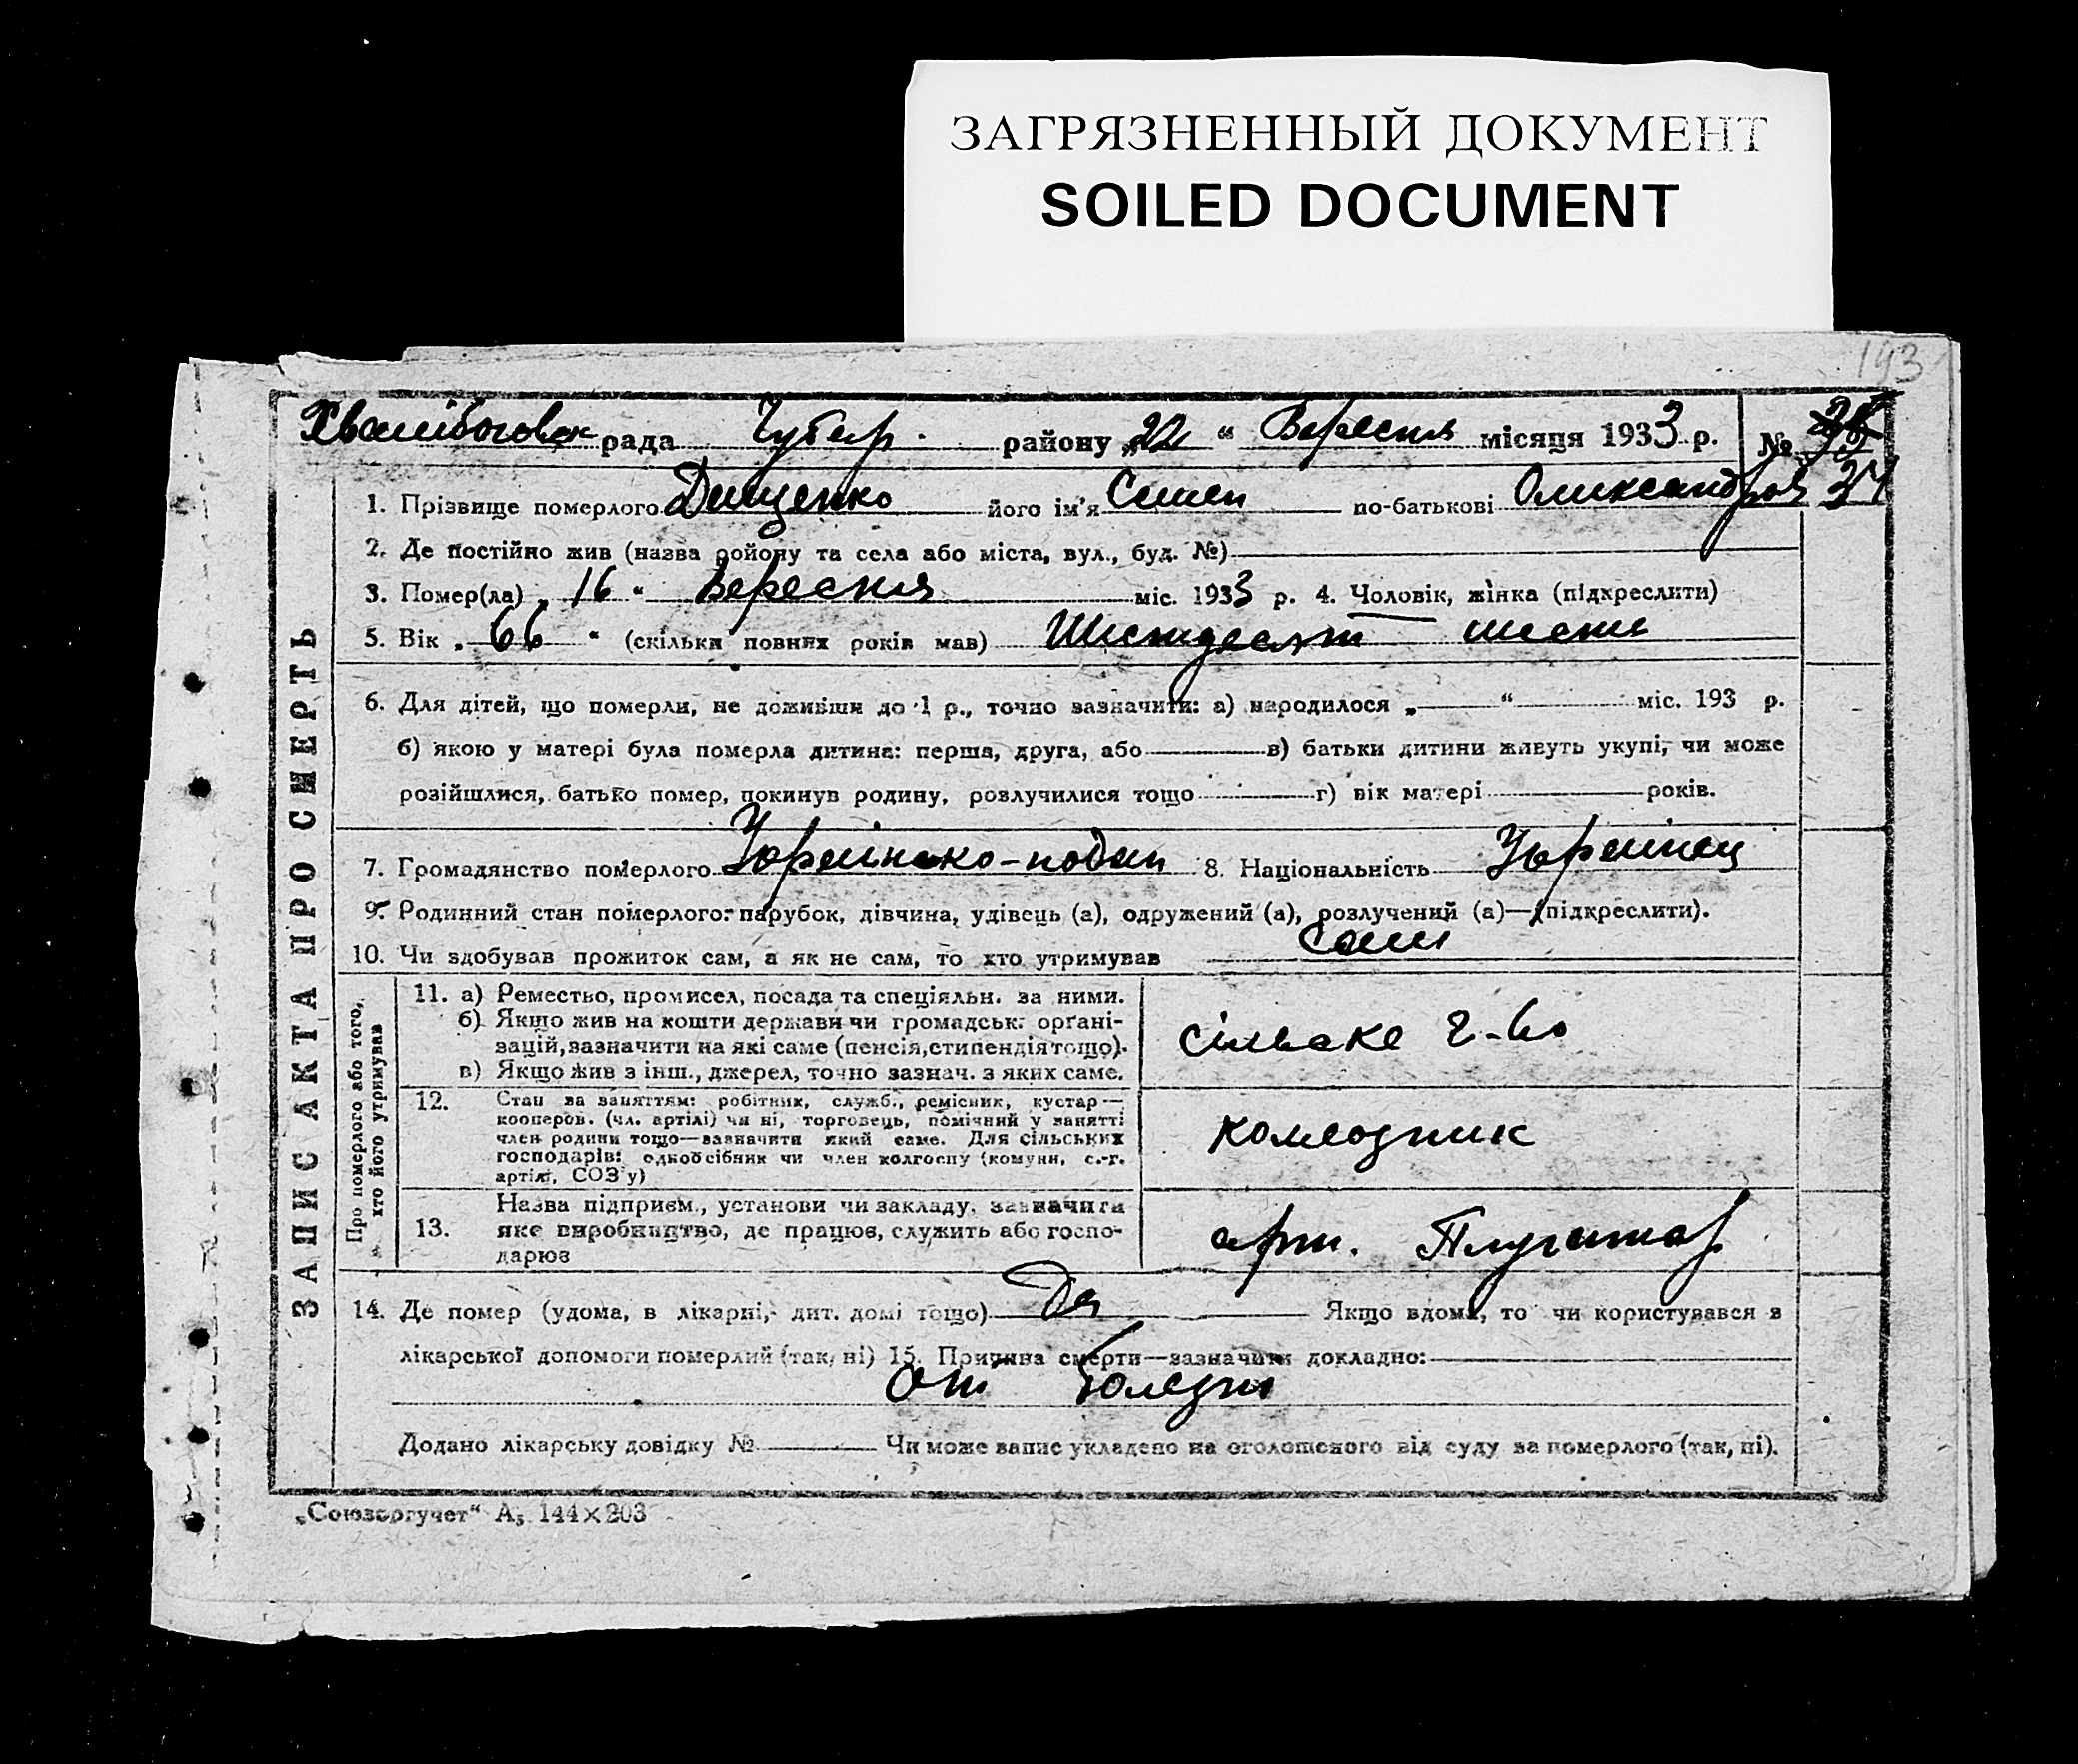 ЗАГРЯЗНЕННЫЙ ДОКУМЕНТ
SOILED DOCUMENT
193
Хвалібоговск рада Чубар. району „22“ Вересня місяця 1933 р. №
34
1. Прізвище померлого Дищенко його ім'я Семен по-батькові Олександров
2. Де постійно жив (назва району та села або міста, вул., буд. №)
3. Помер(ла) „16“ Вересня міс. 1933 р. 4. Чоловік, жінка (підкреслити)
5. Вік „66“ (скільки повних років мав) Шістдесят шесть
6. Для дітей, що померли, не доживши до 1 р., точно зазначити: а) народилося „ “ міс. 193 р.
б) якою у матері була померла дитина: перша, друга, або в) батьки дитини живуть укупі, чи може
розійшлися, батько помер, покинув родину, розлучилися тощо г) вік матері років.
7. Громадянство померлого Украінско-подан 8. Національність Украінец
9. Родинний стан померлого: парубок, дівчина, удівець (а), одружений (а), розлучений (а)—(підкреслити).
10. Чи здобував прожиток сам, а як не сам, то хто утримував сам
ЗАПИС АКТА ПРО СМЕРТЬ
Про померлого або того, хто його утримував
11. а) Ремество, промисел, посада та спеціяльн. за ними.
б) Якщо жив на кошти держави чи громадськ. органі-
зацій, зазначити на які саме (пенсія, стипендія тощо).
в) Якщо жив з інш., джерел, точно зазнач. з яких саме.
сільске г-во
12. Стан за заняттям: робітник, служб., ремісник, кустар—
кооперов. (чл. артілі) чи ні, торговець, помічний у занятті
член родини тощо—зазначити який саме. Для сільських
господарів: одноосібник чи член колгоспу (комуни, с.-г.
артілі, СОЗ'у)
колгозник
13. Назва підприєм., установи чи закладу, зазначити
яке виробництво, де працює, служить або госпо-
дарює
арт. Плугатар
14. Де помер (удома, в лікарні, дит. домі тощо) Да Якщо вдома, то чи користувався з
лікарської допомоги померлий (так, ні) 15. Причина смерти—зазначити докладно:
От болезни
Додано лікарську довідку № Чи може запис укладено на оголошеного від суду за померлого (так, ні).
„Союзоргучет“ А5 144×203